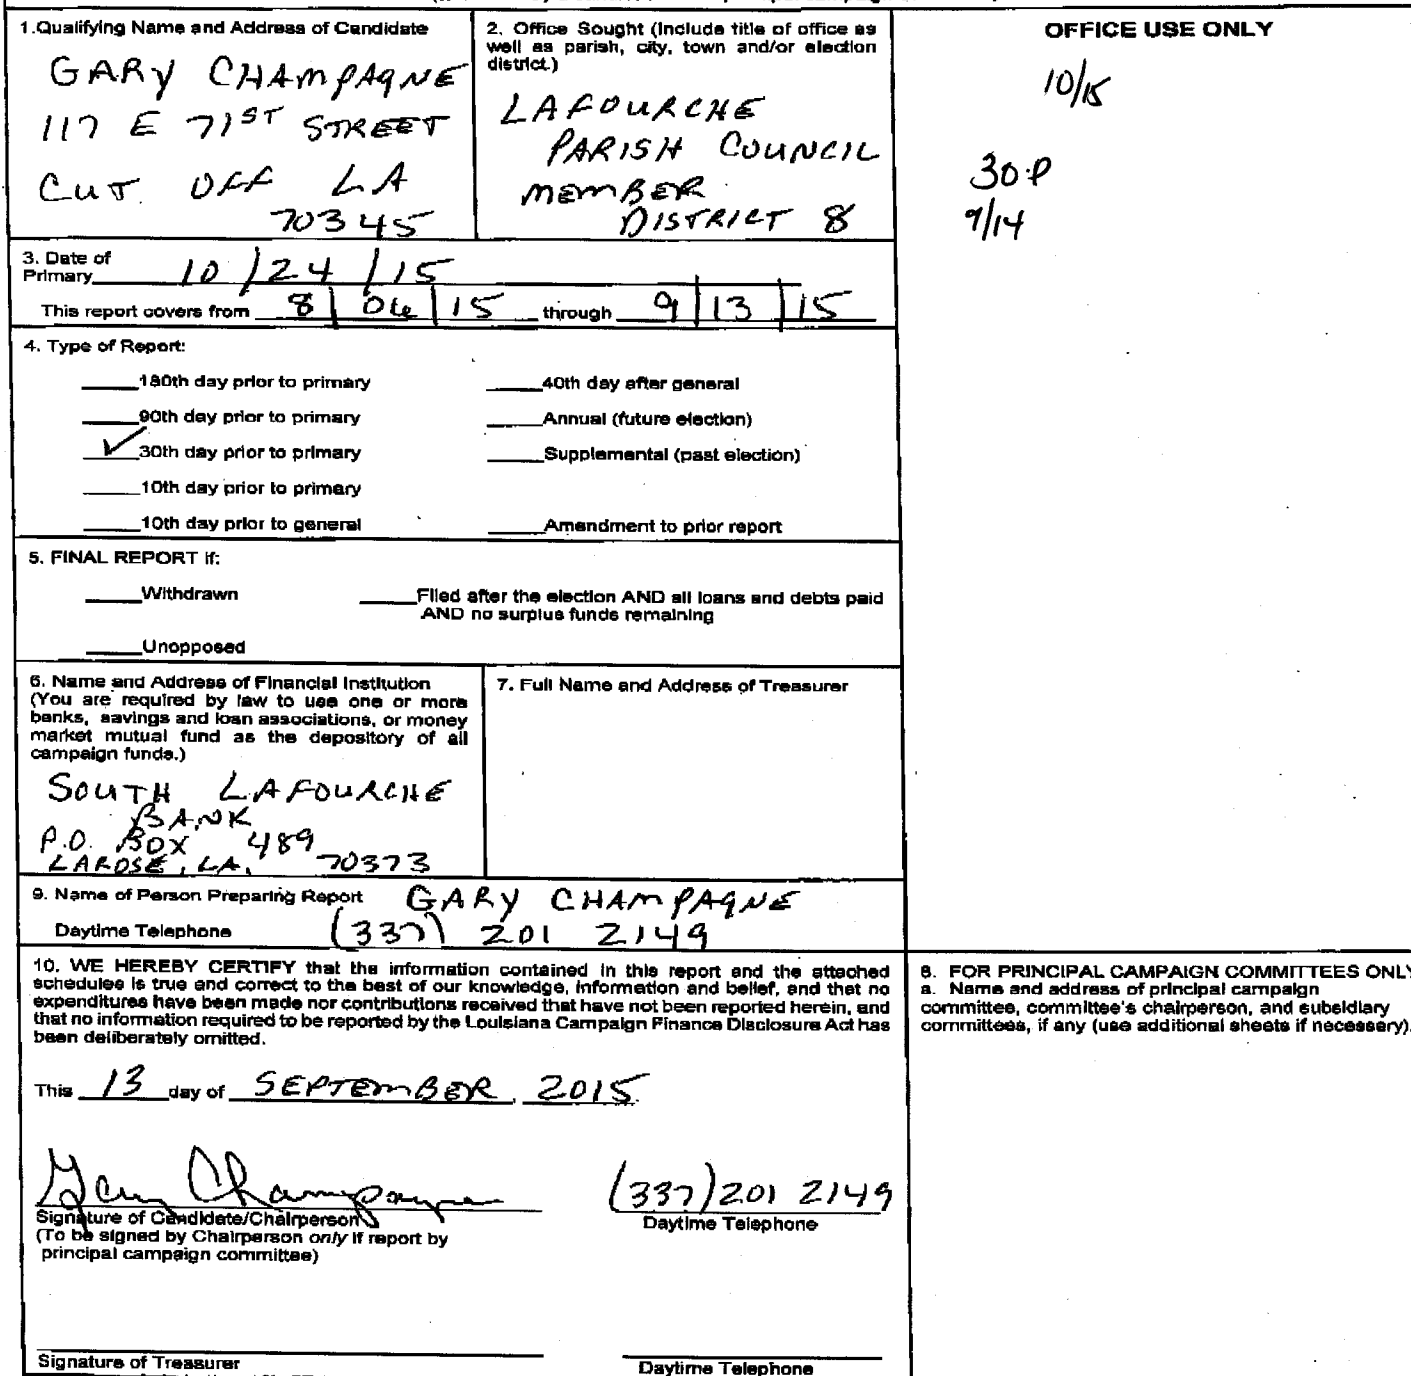 1.Qualifying Name and Address of Candidate
GARY CHAMPAGNE
117 E 71ST STREET
CUT OFF LA
70345
2. Office Sought (Include title of office as
well as parish, city, town and/or election
district.)
LAFOURCHE
PARISH COUNCIL
MEMBER
DISTRICT 8
OFFICE USE ONLY
10/15
30P
9/14
3. Date of
Primary 10/24/15
This report covers from 8/06/15 through 9/13/15
4. Type of Report:
180th day prior to primary
90th day prior to primary
✓ 30th day prior to primary
10th day prior to primary
10th day prior to general
40th day after general
Annual (future election)
Supplemental (past election)
Amendment to prior report
5. FINAL REPORT if:
Withdrawn
Filed after the election AND all loans and debts paid
AND no surplus funds remaining
Unopposed
6. Name and Address of Financial Institution
(You are required by law to use one or more
banks, savings and loan associations, or money
market mutual fund as the depository of all
campaign funds.)
SOUTH LAFOURCHE
BANK
P.O. BOX 489
LAROSE, LA, 70373
7. Full Name and Address of Treasurer
9. Name of Person Preparing Report GARY CHAMPAGNE
Daytime Telephone (337) 201 2149
10. WE HEREBY CERTIFY that the information contained in this report and the attached
schedules is true and correct to the best of our knowledge, information and belief, and that no
expenditures have been made nor contributions received that have not been reported herein, and
that no information required to be reported by the Louisiana Campaign Finance Disclosure Act has
been deliberately omitted.
This 13 day of SEPTEMBER, 2015.
Gary Champagne
Signature of Candidate/Chairperson
(To be signed by Chairperson only if report by
principal campaign committee)
(337) 201 2149
Daytime Telephone
Signature of Treasurer
Daytime Telephone
8. FOR PRINCIPAL CAMPAIGN COMMITTEES ONLY
a. Name and address of principal campaign
committee, committee's chairperson, and subsidiary
committees, if any (use additional sheets if necessary).